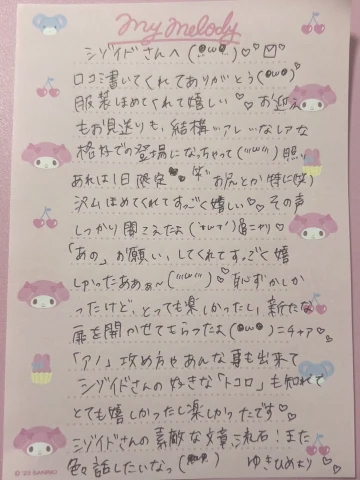 My Melody
シゾイドさんへ (●'ω'●)♡♡
口コミ書いてくれてありがとう(●'ω'●)
服装ほめてくれて嬉しい♡ お迎え
もお見送りも、結構…アレ…なレアな
格好での登場になっちゃって(//'ω'//)照
あれは1日限定♥♥(笑) お尻とか(特に笑)
沢山ほめてくれてすっごく嬉しい♡♡ その声
しっかり聞こえたよ('ω')ニヤリ♡
「あの」お願い、してくれてすっごく嬉
しかったあああぁ~(//'ω'//)♡ 恥ずかしか
ったけど、とっても楽しかったし、新たな
扉を開かせてもらったよ(●'ω'●)=4+ァ♡
「アノ」攻め方やあんな事も出来て
シゾイドさんの好きな「トコロ」も知れて
とても嬉しかったし楽しかったです♡♡
シゾイドさんの素敵な文章…流石!また
色々話したいなっ(●'ω'●) ゆきひめより♡
© '23 SANRIO